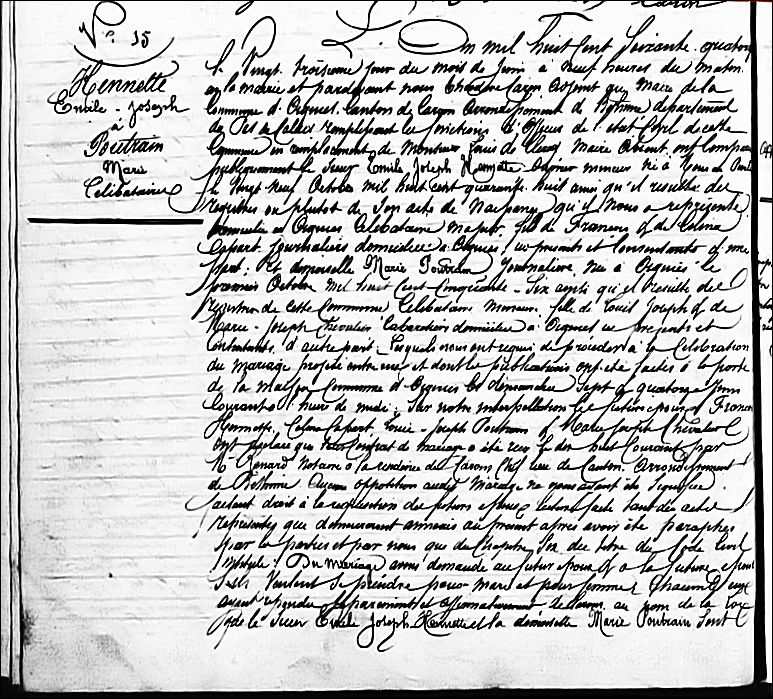 N° 15
Hennette
Emile - Joseph
à
Poutrain
Marie
Célibataires
L'an mil huit cent soixante quatorze
le Vingt troisième jour du mois de Juin à neuf heures du matin
en la mairie et pardevant nous Caron Adjoint au Maire de la
Commune d'Oignies Canton de Carvin Arrondissement de Béthune département
du Pas de Calais remplissant les fonctions d'Officier de l'état Civil de cette
Commune en remplacement de Monsieur Louis de Clercq Maire Absent, ont comparu
publiquement le Sieur Emile Joseph Hennette mineur né à
le Vingt neuf Octobre mil huit cent quarante huit ainsi qu'il résulte des
registres ou plutôt de son acte de Naissance qu'il nous a représenté
domicilié à Oignies Célibataire majeur, fils de François & de Celina
Capart Journaliers domiciliés à Oignies, ici présents et Consentants d'une
part; Et demoiselle Marie Poutrain Journalière, née à Oignies le
premier Octobre mil huit Cent Cinquante - Six ainsi qu'il résulte des
registres de cette Commune Célibataire Mineure, fille de Louis Joseph & de
Marie - Joseph Chevalier Cabaretiers domiciliés à Oignies ici présents et
Consentants, d'autre part; Lesquels nous ont requis de procéder à la Célébration
du mariage projeté entre eux et dont les publications ont été faites à la porte
de la Maison Commune d'Oignies les dimanches sept & quatorze Juin
Courant à l'heure de midi; Sur notre interpellation les futurs époux, François
Hennette, Celina Capart Louis - Joseph Poutrain & Marie Joseph Chevalier
ont déclaré que leur Contrat de mariage a été reçu le dix huit Courant par
Mr Renard Notaire à la résidence de Carvin, Chef lieu de Canton, Arrondissement
de Béthune Aucune opposition audit Mariage ne nous ayant été signifiée
faisant droit à la réquisition des futurs époux lecture faite tant des actes
représentés qui demeureront annexés au présent après avoir été paraphés
par les parties et par nous que du Chapitre Six du titre du Code Civil
intitulé: Du Mariage avons demandé au futur époux & à la future épouse
s'ils Veulent se prendre pour mari et pour femme Chacun d'eux
ayant répondu séparément et affirmativement déclarons au nom de la loi
que le Sieur Emile Joseph Hennette et la demoiselle Marie Poutrain Sont